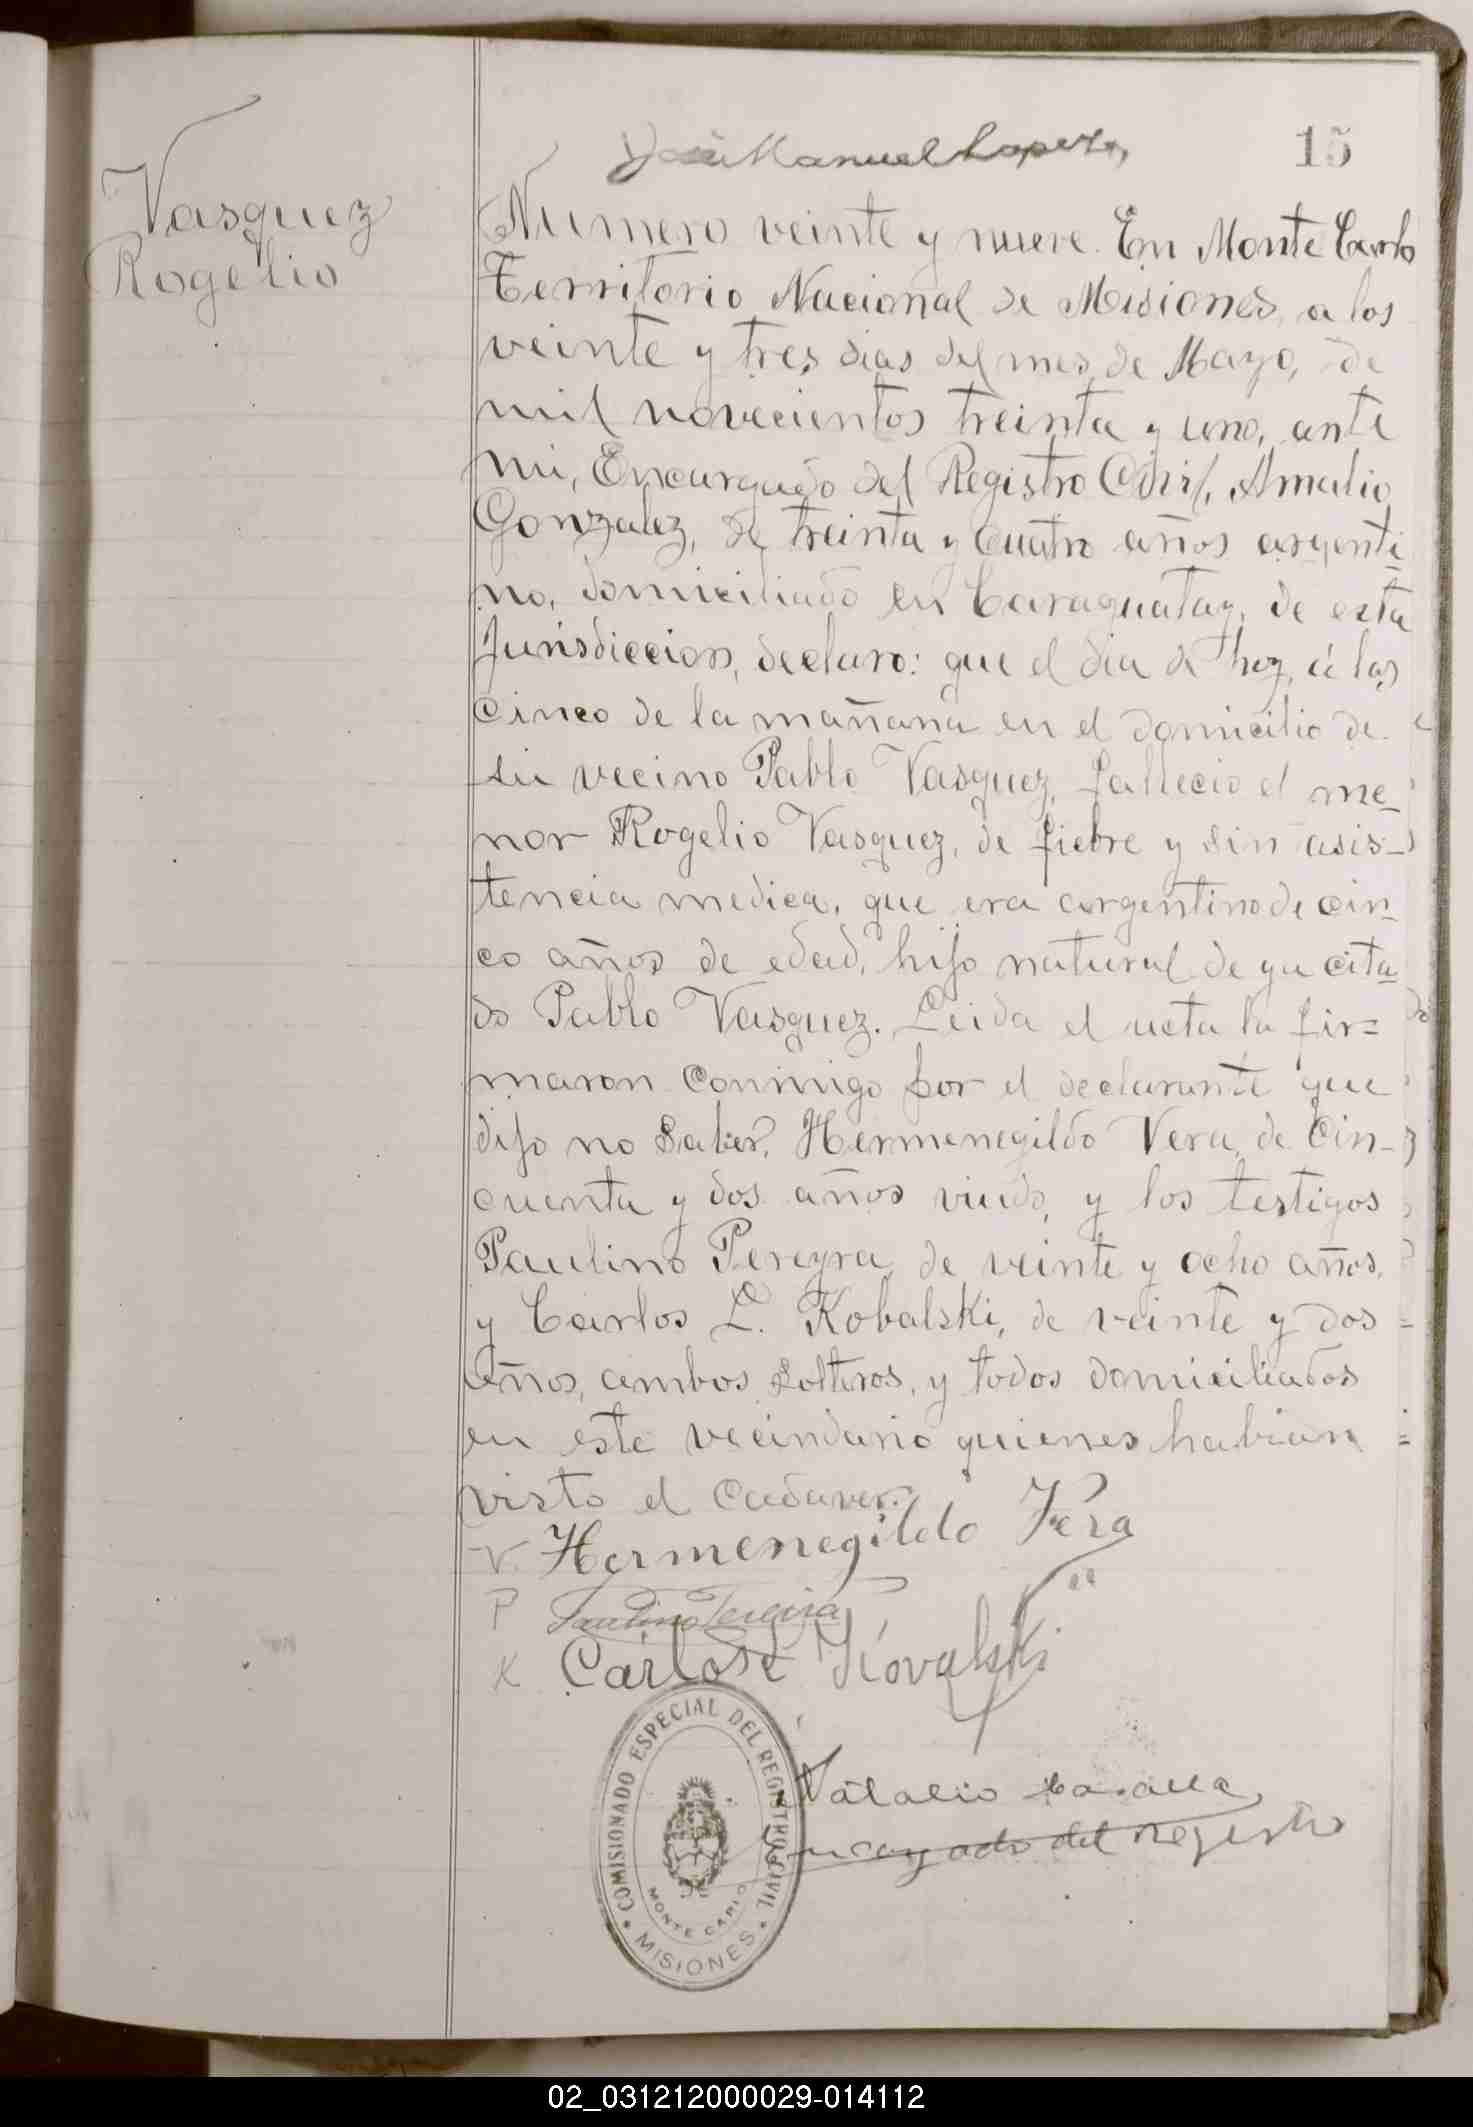 José Manuel Lopez
15
Vasquez
Rogelio
Numero veinte y nueve. En Monte Carlo
Territorio Nacional de Misiones, a los
veinte y tres dias del mes de Mayo, de
mil novecientos treinta y uno, ante
mi, Encargado del Registro Civil, Amalio
Gonzalez, de treinta y cuatro años argenti-
no, domiciliado en Caraguatay, de esta
Jurisdiccion, declaro: que el dia de hoy, á las
cinco de la mañana en el domicilio de
su vecino Pablo Vasquez, fallecio el me-
nor Rogelio Vasquez, de fiebre y sin asis-
tencia medica, que era argentino de cin-
co años de edad, hijo natural de ya cita-
do Pablo Vasquez. Leida el acta la fir=
maron conmigo por el declarante que
dijo no saber, Hermenegildo Vera, de cin-
cuenta y dos años viudo, y los testigos
Paulino Pereyra, de veinte y ocho años,
y Carlos L. Kobalski, de veinte y dos
años, ambos solteros, y todos domiciliados
en este vecindario quienes habian
visto el cadaver.
V. Hermenegildo Vera
P Paulino Pereira
K Carlos Kovalski
COMISIONADO ESPECIAL DEL REGISTRO CIVIL
MONTE CARLO
MISIONES
Natalio
Encargado del Registro
02_031212000029-014112